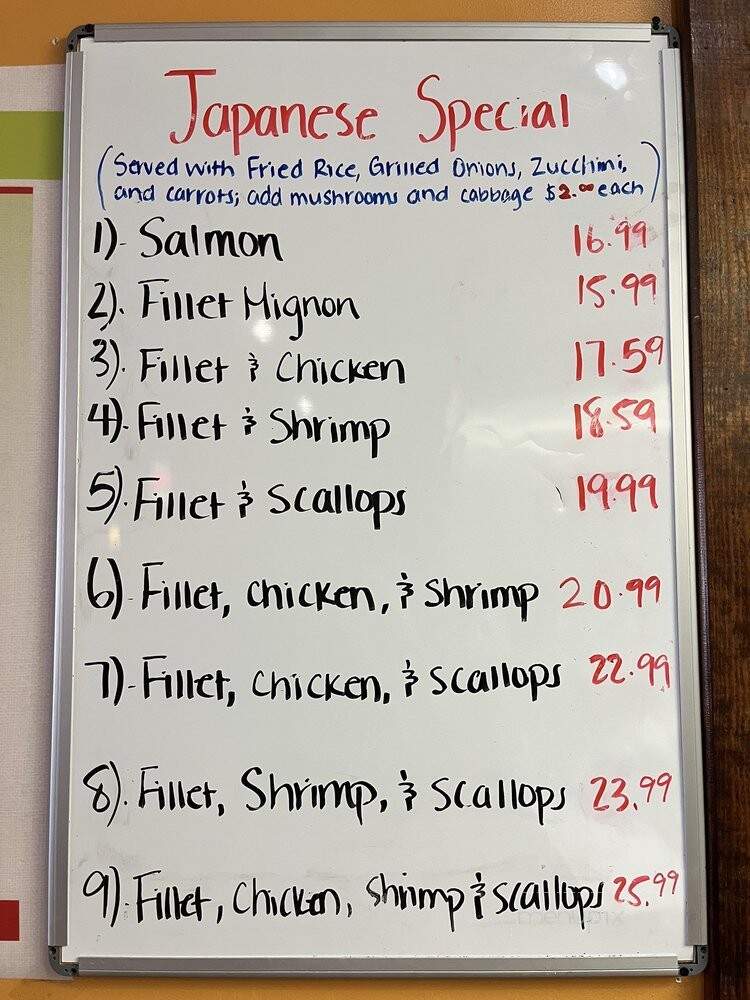 Japanese Special
(Served with Fried Rice, Grilled Onions, Zucchini,
and carrots; add mushrooms and cabbage $2.00 each)
1)- Salmon 16.99
2). Fillet Mignon 15.99
3). Fillet & Chicken 17.59
4). Fillet & Shrimp 18.59
5). Fillet & Scallops 19.99
6)- Fillet, chicken, & Shrimp 20.99
7)- Fillet, chicken, & scallops 22.99
8). Fillet, Shrimp, & scallops 23.99
9). Fillet, chicken, shrimp & scallops 25.99